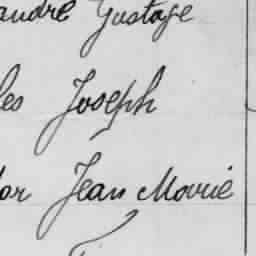 andre Gustave
les Joseph
or Jean Marie